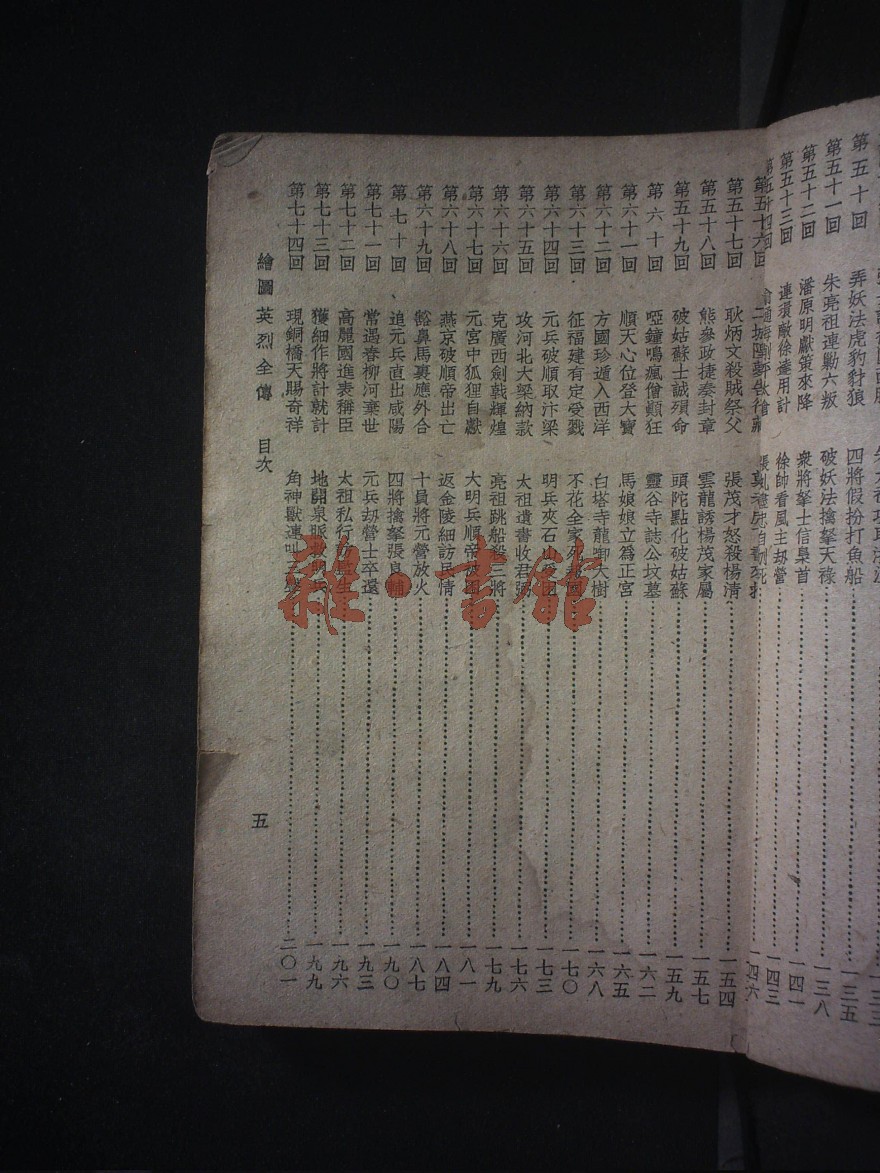 第五十回 弄妖法虎豹豺狼 四將假扮打魚船 一三五
第五十一回 朱亮祖連勦六叛 破妖法擒拏天祿 一三八
第五十二回 潘原明獻策來降 衆將拏士信梟首 一四一
第五十三回 連環敵徐達用計 徐帥看風主劫營 一四三
第五十六回
第五十七回 耿炳文殺賊祭父 張茂才怒殺楊清 一五四
第五十八回 熊參政捷奏封章 雲龍誘楊茂家屬 一五七
第五十九回 破姑蘇士誠殞命 頭陀點化破姑蘇 一五九
第六十回 啞鐘鳴瘋僧顛狂 靈谷寺誌公坟墓 一六二
第六十一回 順天心位登大寶 馬娘娘立爲正宮 一六五
第六十二回 方國珍遁入西洋 白塔寺龍啣大樹 一六八
第六十三回 征福建有定受戮 不花全家死 國 一七〇
第六十四回 元兵破順取汴梁 明兵夾石山 一七三
第六十五回 攻河北大梁納款 太祖遺書收君 一七六
第六十六回 克廣西劍戟輝煌 亮祖跳船殺三將 一七九
第六十七回 元宮中狐狸自獻 大明兵順帝 一八一
第六十八回 燕京破順帝出亡 返金陵細訪民情 一八四
第六十九回 豁鼻馬裏應外合 十員將元營放火 一八七
第七十回 追元兵直出咸陽 四將擒拏張良 一九〇
第七十一回 常遇春柳河棄世 元兵劫營士卒還 一九三
第七十二回 高麗國進表稱臣 太祖私行訪 生 一九六
第七十三回 獲細作將計就計 地開泉脈 一九九
第七十四回 現銅橋天賜奇祥 角神獸連叫三聲 二〇一
繪圖英烈全傳 目次 五
雜·書館